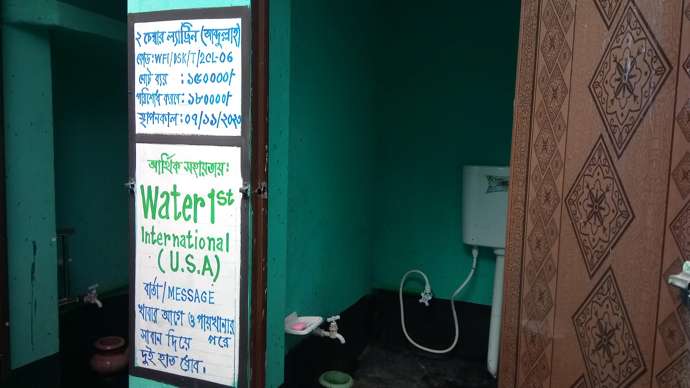 ২ চেম্বার ল্যাট্রিন (আব্দুল্লাহ)
কোড: WFI/DSK/T/2CL-06
মোট ব্যয় : ১৫০০০০/
পরিশোধ করবে: ১৮০০০/
স্থাপনকাল: ০৭/১১/২০২০
আর্থিক সহায়তায়:
Water 1st
International
(U.S.A)
বার্তা/MESSAGE
খাবার আগে ও পায়খানার
সাবান দিয়ে পরে
দুই হাত ধোব।